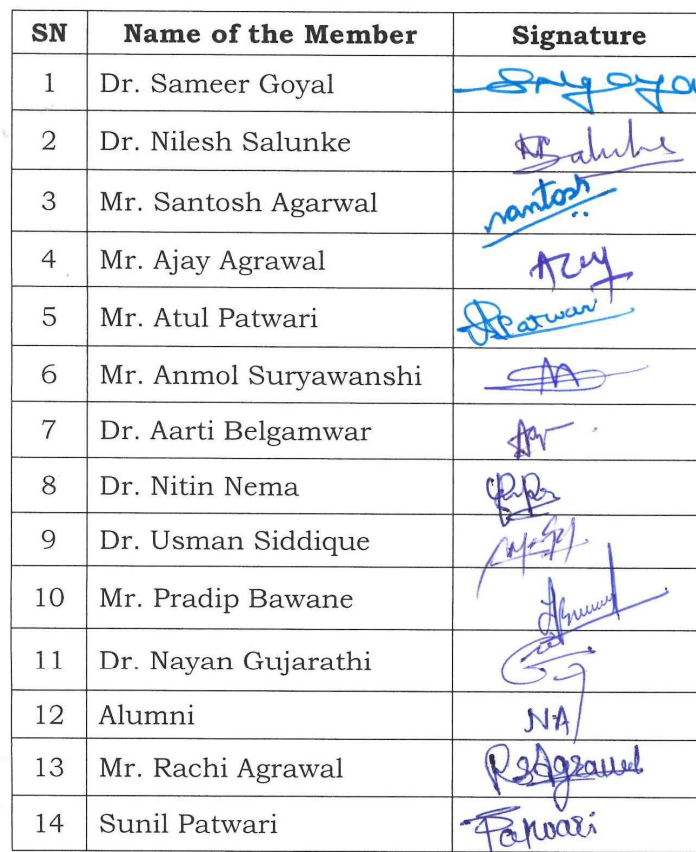 SN Name of the Member Signature
1 Dr. Sameer Goyal
2 Dr. Nilesh Salunke Salunke
3 Mr. Santosh Agarwal santosh
4 Mr. Ajay Agrawal
5 Mr. Atul Patwari Patwari
6 Mr. Anmol Suryawanshi
7 Dr. Aarti Belgamwar
8 Dr. Nitin Nema
9 Dr. Usman Siddique
10 Mr. Pradip Bawane
11 Dr. Nayan Gujarathi
12 Alumni NA
13 Mr. Rachi Agrawal RsAgrawal
14 Sunil Patwari